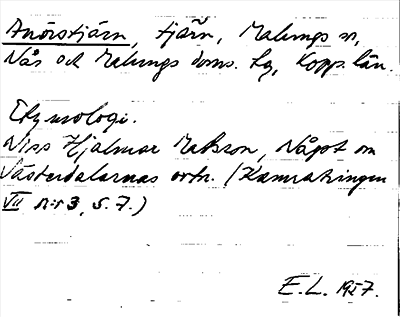 Anörstjärn, tjärn, Malungs sn,
Nås och Malungs doms. tg, Kopp. län.
Etymologi.
Hjalmar Matsson, Något om
Västerdalarnas ortn. (Kamratringen
VII nr 3, s. 7.)
E.L. 1957.